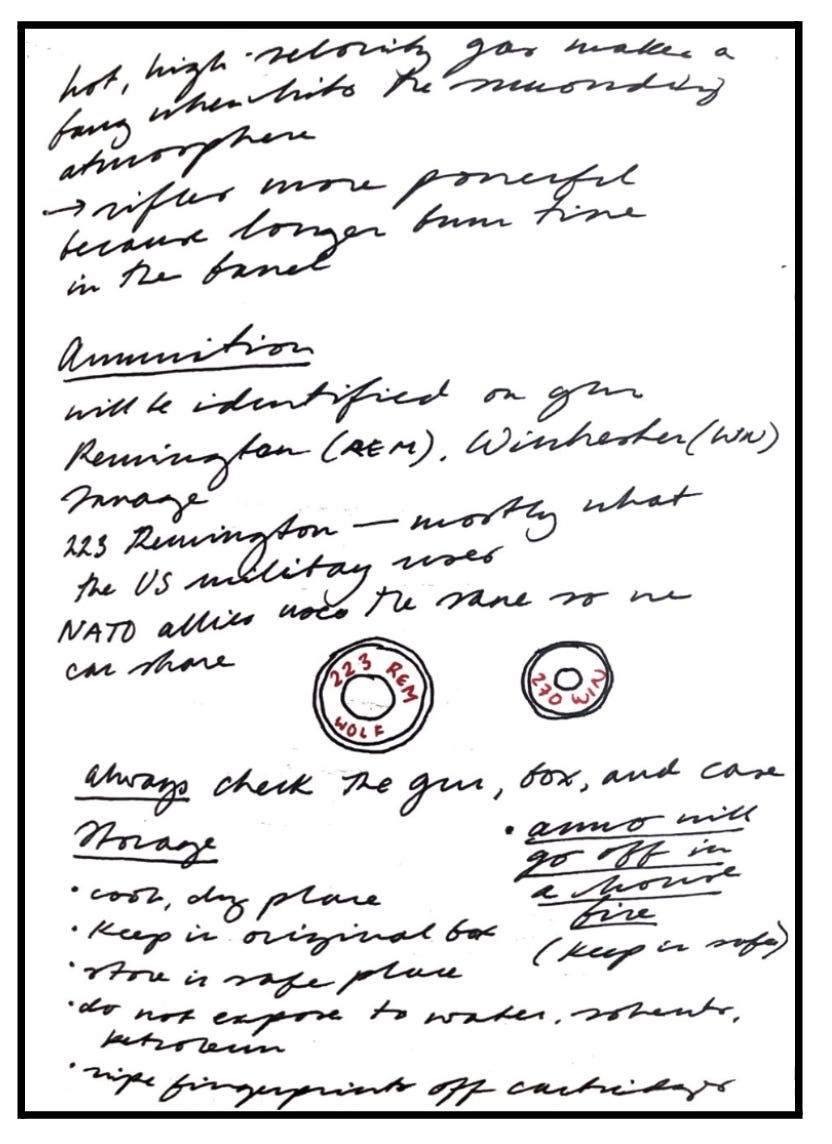 hot, high-velocity gas makes a
bang when hits the surrounding
atmosphere
→ rifles more powerful
because longer burn time
in the barrel
Ammunition
will be identified on gun
Remington (REM), Winchester (WIN)
Savage
223 Remington — mostly what
the US military uses
NATO allies uses the same so we
can share
223 REM
WOLF
270 WIN
always check the gun, box, and case
Storage
• cool, dry place
• Keep in original box
• store in safe place
• do not expose to water, solvents,
petroleum
• wipe fingerprints off cartridges
• ammo will
go off in
a house
fire
(keep in safe)